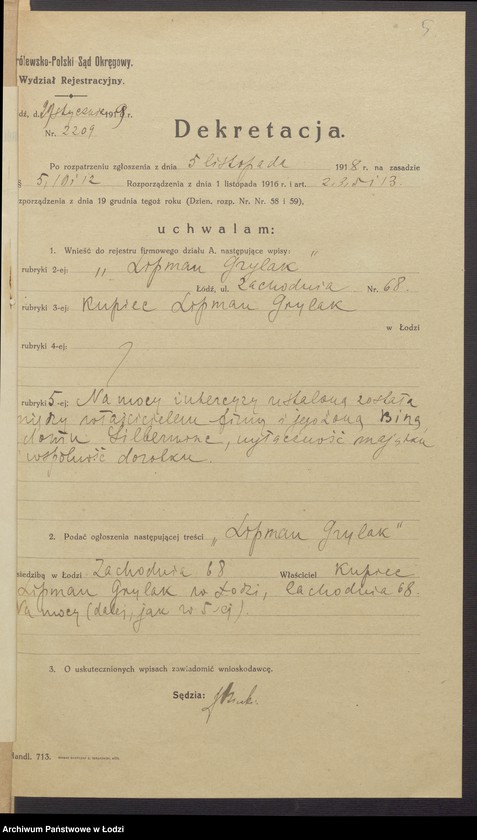 5
rólewsko-Polski Sąd Okręgowy.
Wydział Rejestracyjny.
dź, d. stycznia 1919 r.
Nr. 2209
Dekretacja.
Po rozpatrzeniu zgłoszenia z dnia 5 listopada 1918 r. na zasadzie
§ 5, 10 i 12 Rozporządzenia z dnia 1 listopada 1916 r. i art. 2, 3, 5 i 13.
zporządzenia z dnia 19 grudnia tegoż roku (Dzien. rozp. Nr. Nr. 58 i 59),
uchwalam:
1. Wnieść do rejestru firmowego działu A. następujące wpisy:
rubryki 2-ej: „Lopman Grylak"
Łódź, ul. Zachodnia Nr. 68.
rubryki 3-ej: Kupiec Lopman Grylak
w Łodzi
rubryki 4-ej:
rubryki 5-ej: Na mocy intercyzy ustaloną została
między właścicielem firmy i jego żoną Biną
domu Silberman, wyłączność majątku
i wspólność dorobku.
2. Podać ogłoszenia następującej treści „Lopman Grylak"
siedzibą w Łodzi Zachodnia 68 Właściciel Kupiec
Lopman Grylak w Łodzi, Zachodnia 68.
Na mocy (dalej, jak w 5-ej).
3. O uskutecznionych wpisach zawiadomić wnioskodawcę.
Sędzia:
Handl. 713.
Archiwum Państwowe w Łodzi